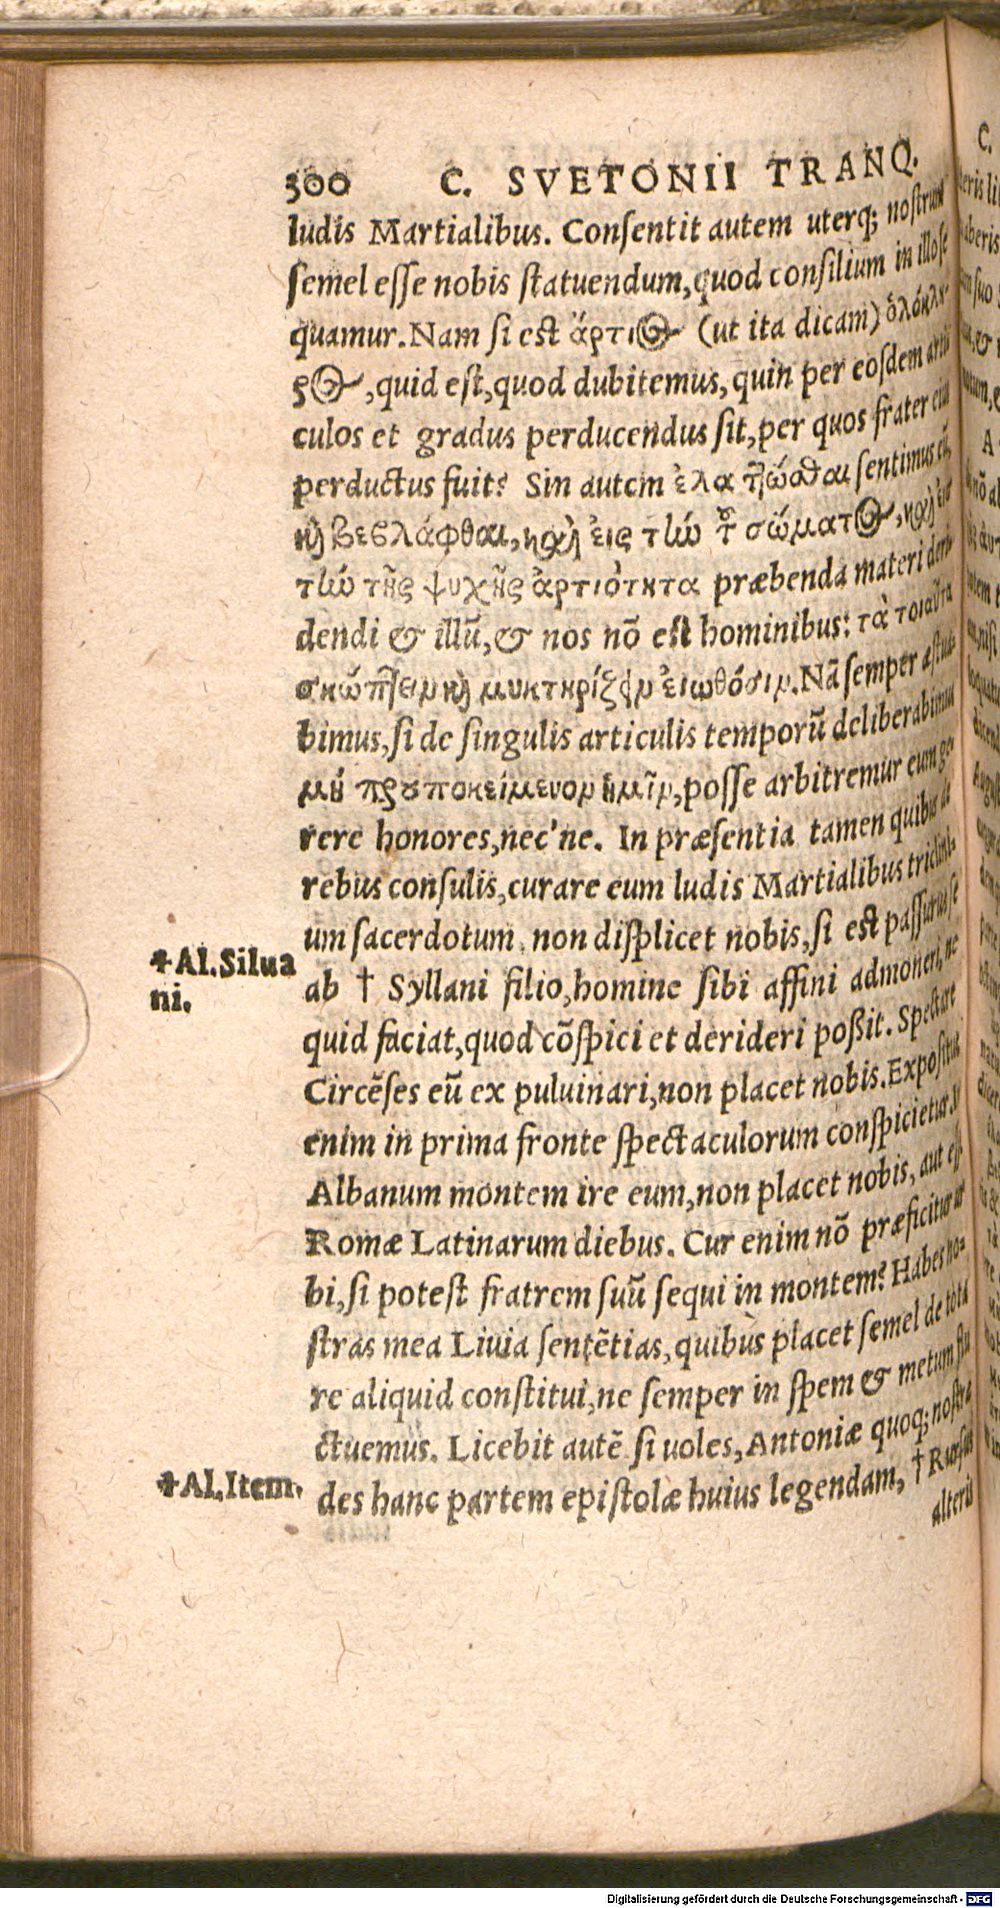 300 C. SVETONII TRANQ.
ludis Martialibus. Conſentit autem uterq; noſtrum
ſemel eſſe nobis ſtatuendum, quod conſilium in illo ſe
quamur. Nam ſi est ἄρτιος (ut ita dicam) ὁλόκλη-
ρος, quid eſt, quod dubitemus, quin per eoſdem arti
culos et gradus perducendus ſit, per quos frater eius
perductus fuit? Sin autem ἐλαττῶσθαι ſentimus eū,
καὶ βεβλάφθαι, καὶ εἰς τὴν τοῦ σώματος, καὶ εἰς
τὴν τῆς ψυχῆς ἀρτιότητα præbenda materi deri
dendi & illũ, & nos nõ est hominibus: τὰ τοιαῦτα
σκώπτειν καὶ μυκτηρίζειν εἰωθόσιν. Nã ſemper æſtua
bimus, ſi de ſingulis articulis temporũ deliberabimus
μὴ προϋποκείμενον ἡμῖν, poſſe arbitremur eum ge
rere honores, nec'ne. In præſentia tamen quibus de
rebus conſulis, curare eum ludis Martialibus triclini-
um ſacerdotum, non diſplicet nobis, ſi est paſſurus ſe
ab † Syllani filio, homine ſibi affini admoneri, ne
quid faciat, quod cõſpici et derideri poßit. Spectare
Circẽſes eũ ex puluinari, non placet nobis. Expoſitus
enim in prima fronte ſpectaculorum conſpicietur. In
Albanum montem ire eum, non placet nobis, aut eſſe
Romæ Latinarum diebus. Cur enim nõ præficitur ur
bi, ſi potest fratrem ſuũ ſequi in montem? Habes no-
ſtras mea Liuia ſentẽtias, quibus placet ſemel de tota
re aliquid conſtitui, ne ſemper in ſpem & metum flu
ctuemus. Licebit autẽ ſi uoles, Antoniæ quoq; noſtræ
des hanc partem epiſtolæ huius legendam, † Rurſus
alteris
✝Al. Silua
ni.
✝Al. Item.
Digitalisierung gefördert durch die Deutsche Forschungsgemeinschaft - DFG